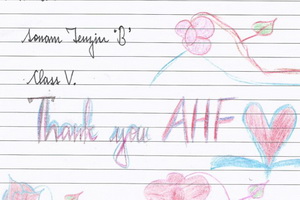 Sonam Tenzin 'B'
Class V.
Thank you AHF